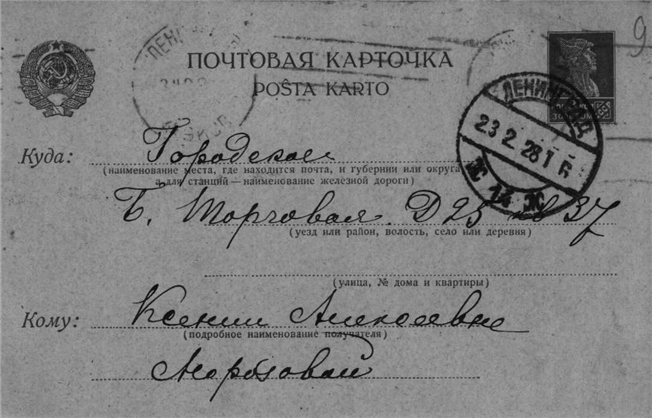 9
ПОЧТОВАЯ КАРТОЧКА
POŜTA KARTO
ЛЕНИНГРАД
23.2.28
Ж 14 Ж
Куда: Городское
(наименование места, где находится почта, и губернии или округа
а для станций—наименование железной дороги)
Б. Торговая. Д 25 кв 37
(уезд или район, волость, село или деревня)
(улица, № дома и квартиры)
Кому: Ксении Алексеевне
(подробное наименование получателя)
Морозовой